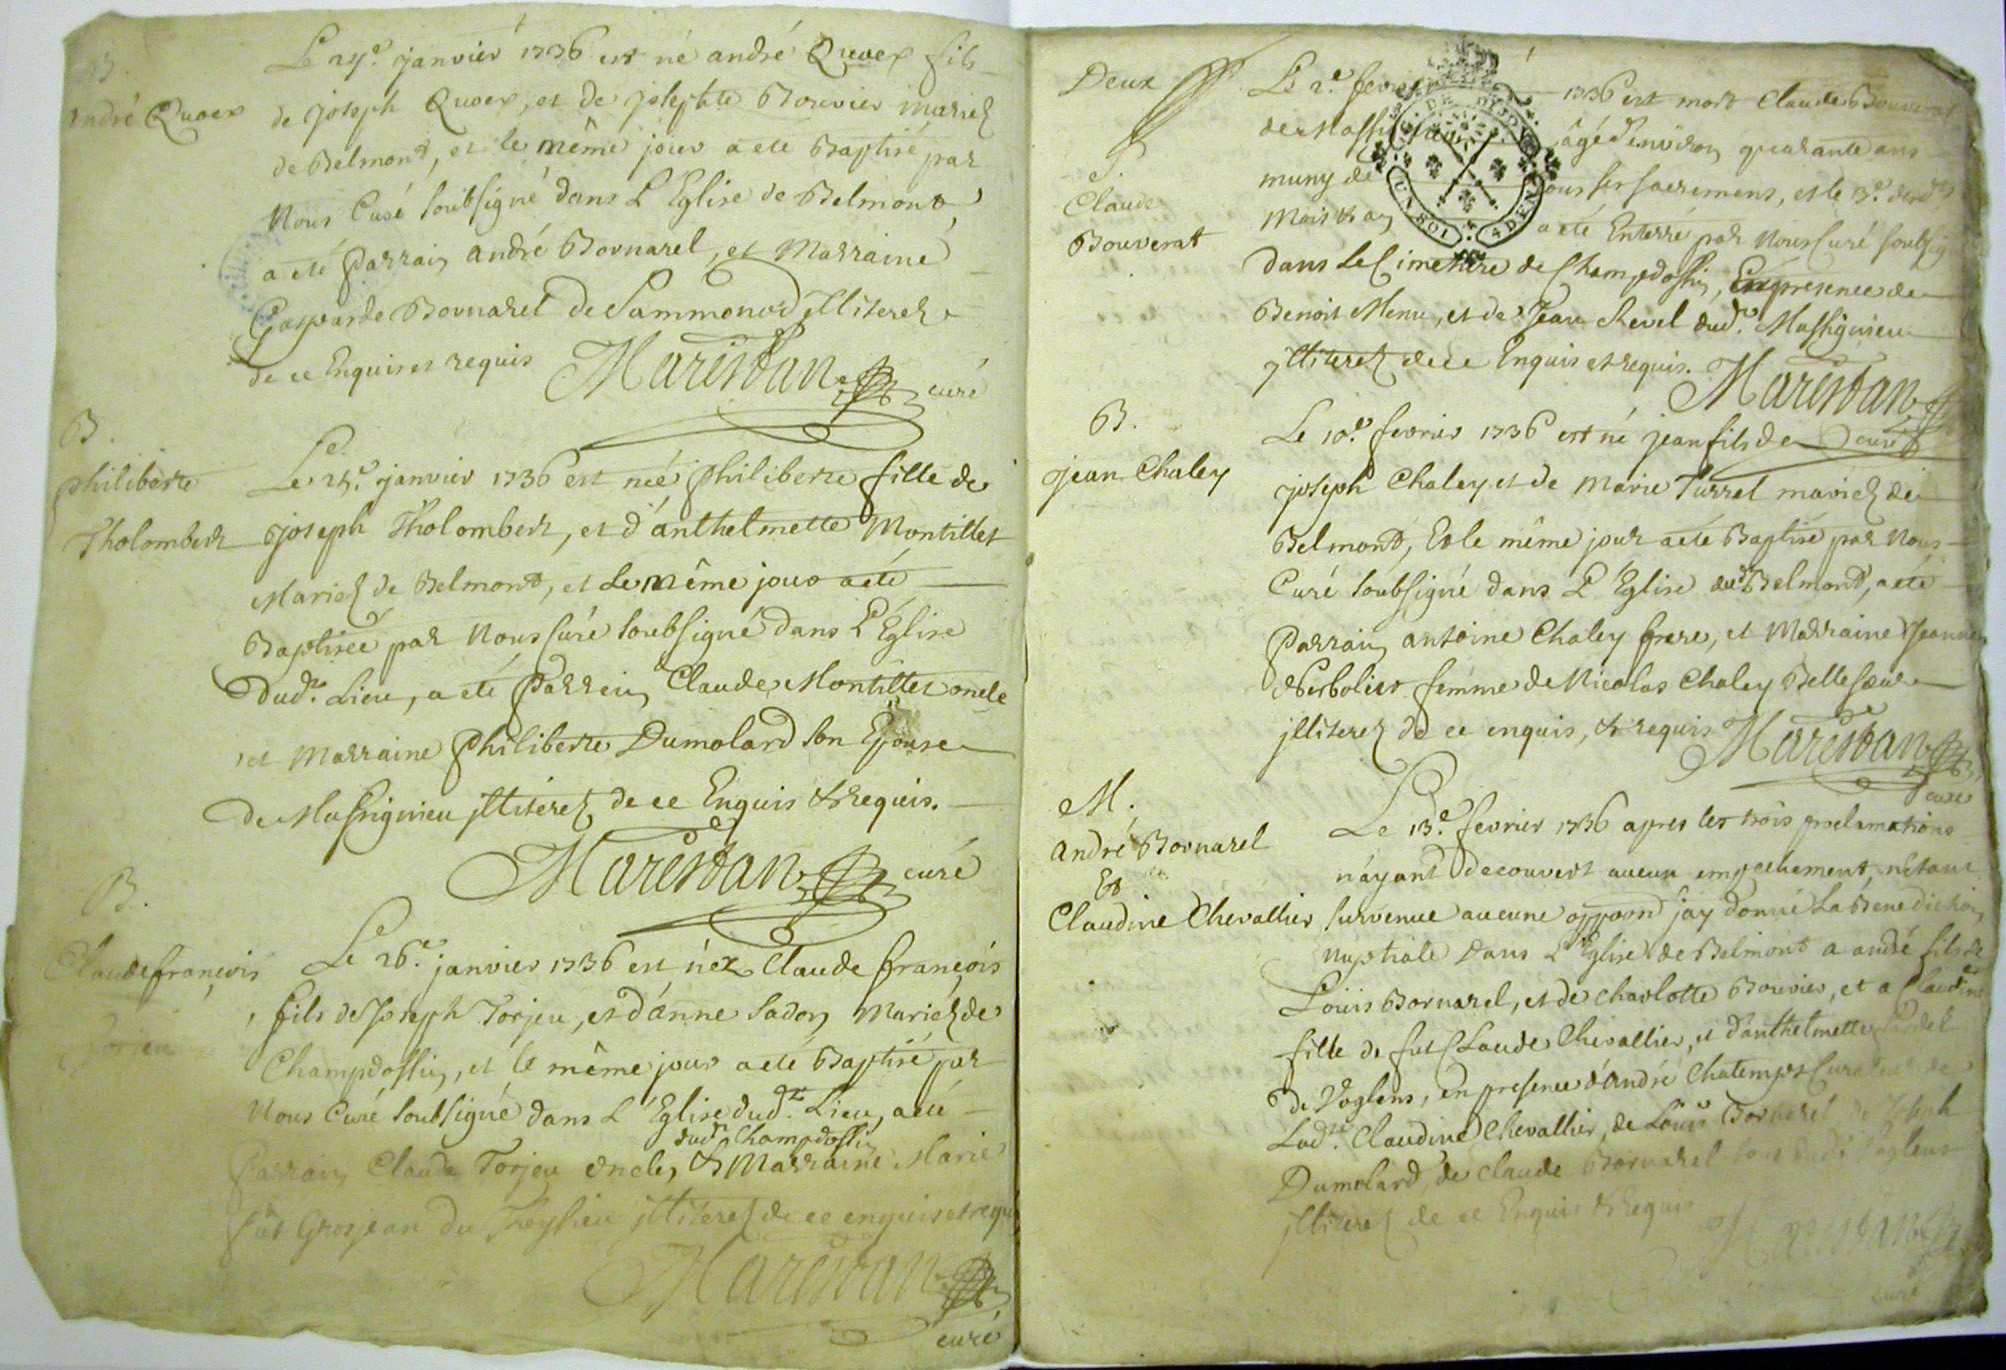 B.
André Quoex
Le 24.e janvier 1736 est né andré Quoex fils
de joseph Quoex, et de josephte Bouvier mariez
de Belmont, et le même jour a eté Baptisé par
Nous Curé soubsigné dans L'Eglise de Belmont,
a eté parrain andré Bornarel, et Marraine
Gasparde Bornarel de Sammonod jlliterez
de ce Enquis et requis Marestan curé
B.
philiberte
Tholombert
Le 25.e janvier 1736 est née philiberte fille de
joseph Tholombert, et d'anthelmette Montillet
Mariez de Belmont, et le même jour a eté
Baptisée par Nous Curé soubsigné dans L'Eglise
dud.t Lieu, a eté parrein Claude Montillet oncle
et Marraine philiberte Dumolard son Epouse
de Massignieu jlliterez de ce Enquis & requis.
Marestan curé
B.
Claude françois
Torjeu
Le 26.e janvier 1736 est néz Claude françois
fils de Joseph Torjeu, et d'anne Sadon Mariez de
Champdossin, et le même jour a eté Baptisé par
Nous Curé soubsigné dans L'Eglise dud.t Lieu, a eté
dud.t Champdossin
parrain Claude Torjeu oncle, & Marraine Marie
Grosjean du jlliterez de ce enquis et requis
Marestan
curé
Deux
S.
Claude
Bouverat
Le 2.e fevrier 1736 est mort Claude Bouverat
de Massignieu âgé d'environ quarante ans
muny de tous ses sacremens, et le 3.e desd.ts
Mois & an a eté Enterré par Nous Curé soubsig
dans le Cimetiere de Champdossin, En presence de
Benoit Menu, et de Jean Revel dud.t Massignieu
jlliterez de ce Enquis et requis. Marestan
curé
B.
jean Chaley
Le 10.e fevrier 1736 est né jean fils de
joseph Chaley et de Marie Turrel mariez de
Belmont, Et le même jour a eté Baptisé par Nous
Curé soubsigné dans L'Eglise dud.t Belmont, a eté
parrain antoine Chaley frere, et Marraine Jeanne
femme de Nicolas Chaley Belle sœur
jlliterez de ce enquis, & requis Marestan
curé
M.
André Bornarel
Et
Claudine Chevallier
Le 13.e fevrier 1736 apres les trois proclamations
n'ayant decouvert aucun empechement, n'etant
survenue aucune oppoon jay donné La Benediction
nuptiale Dans L'Eglise de Belmont a andré fils de
Louis Bornarel, et de Charlotte Bouvier, et a Claudine
fille de fut Claude Chevallier, et d'anthelmette
de Voglens, en presence d'André Chatemps Curateur de
Lad.te Claudine Chevallier, de Louis Bornarel de Joseph
Dumolard, de Claude Bornarel tous dud.t Voglens
jlliterez de ce Enquis & Requis
Marestan
curé